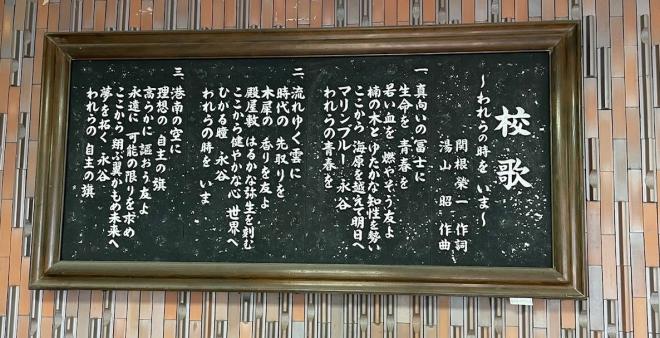 校歌
～われらの時を いま～
関根榮一 作詞
湯山 昭 作曲
一、真向いの冨士に
生命を 青春を
若い血を 燃やそう友よ
楠の木と ゆたかな知性を勢い
ここから 海原を越えて明日へ
マリンブルー 永谷
われらの青春を
二、流れゆく雲に
時代の 先取りを
木犀の 香りを友よ
殿屋敷 はるかな弥生を刻む
ここから健やかな心 世界へ
ひかる瞳 永谷
われらの時を いま
三、港南の空に
理想の 自主の旗
高らかに 謳おう友よ
永遠に 可能の限りを求め
ここから 翔ぶ翼かもめ未来へ
夢を拓く 永谷
われらの 自主の旗